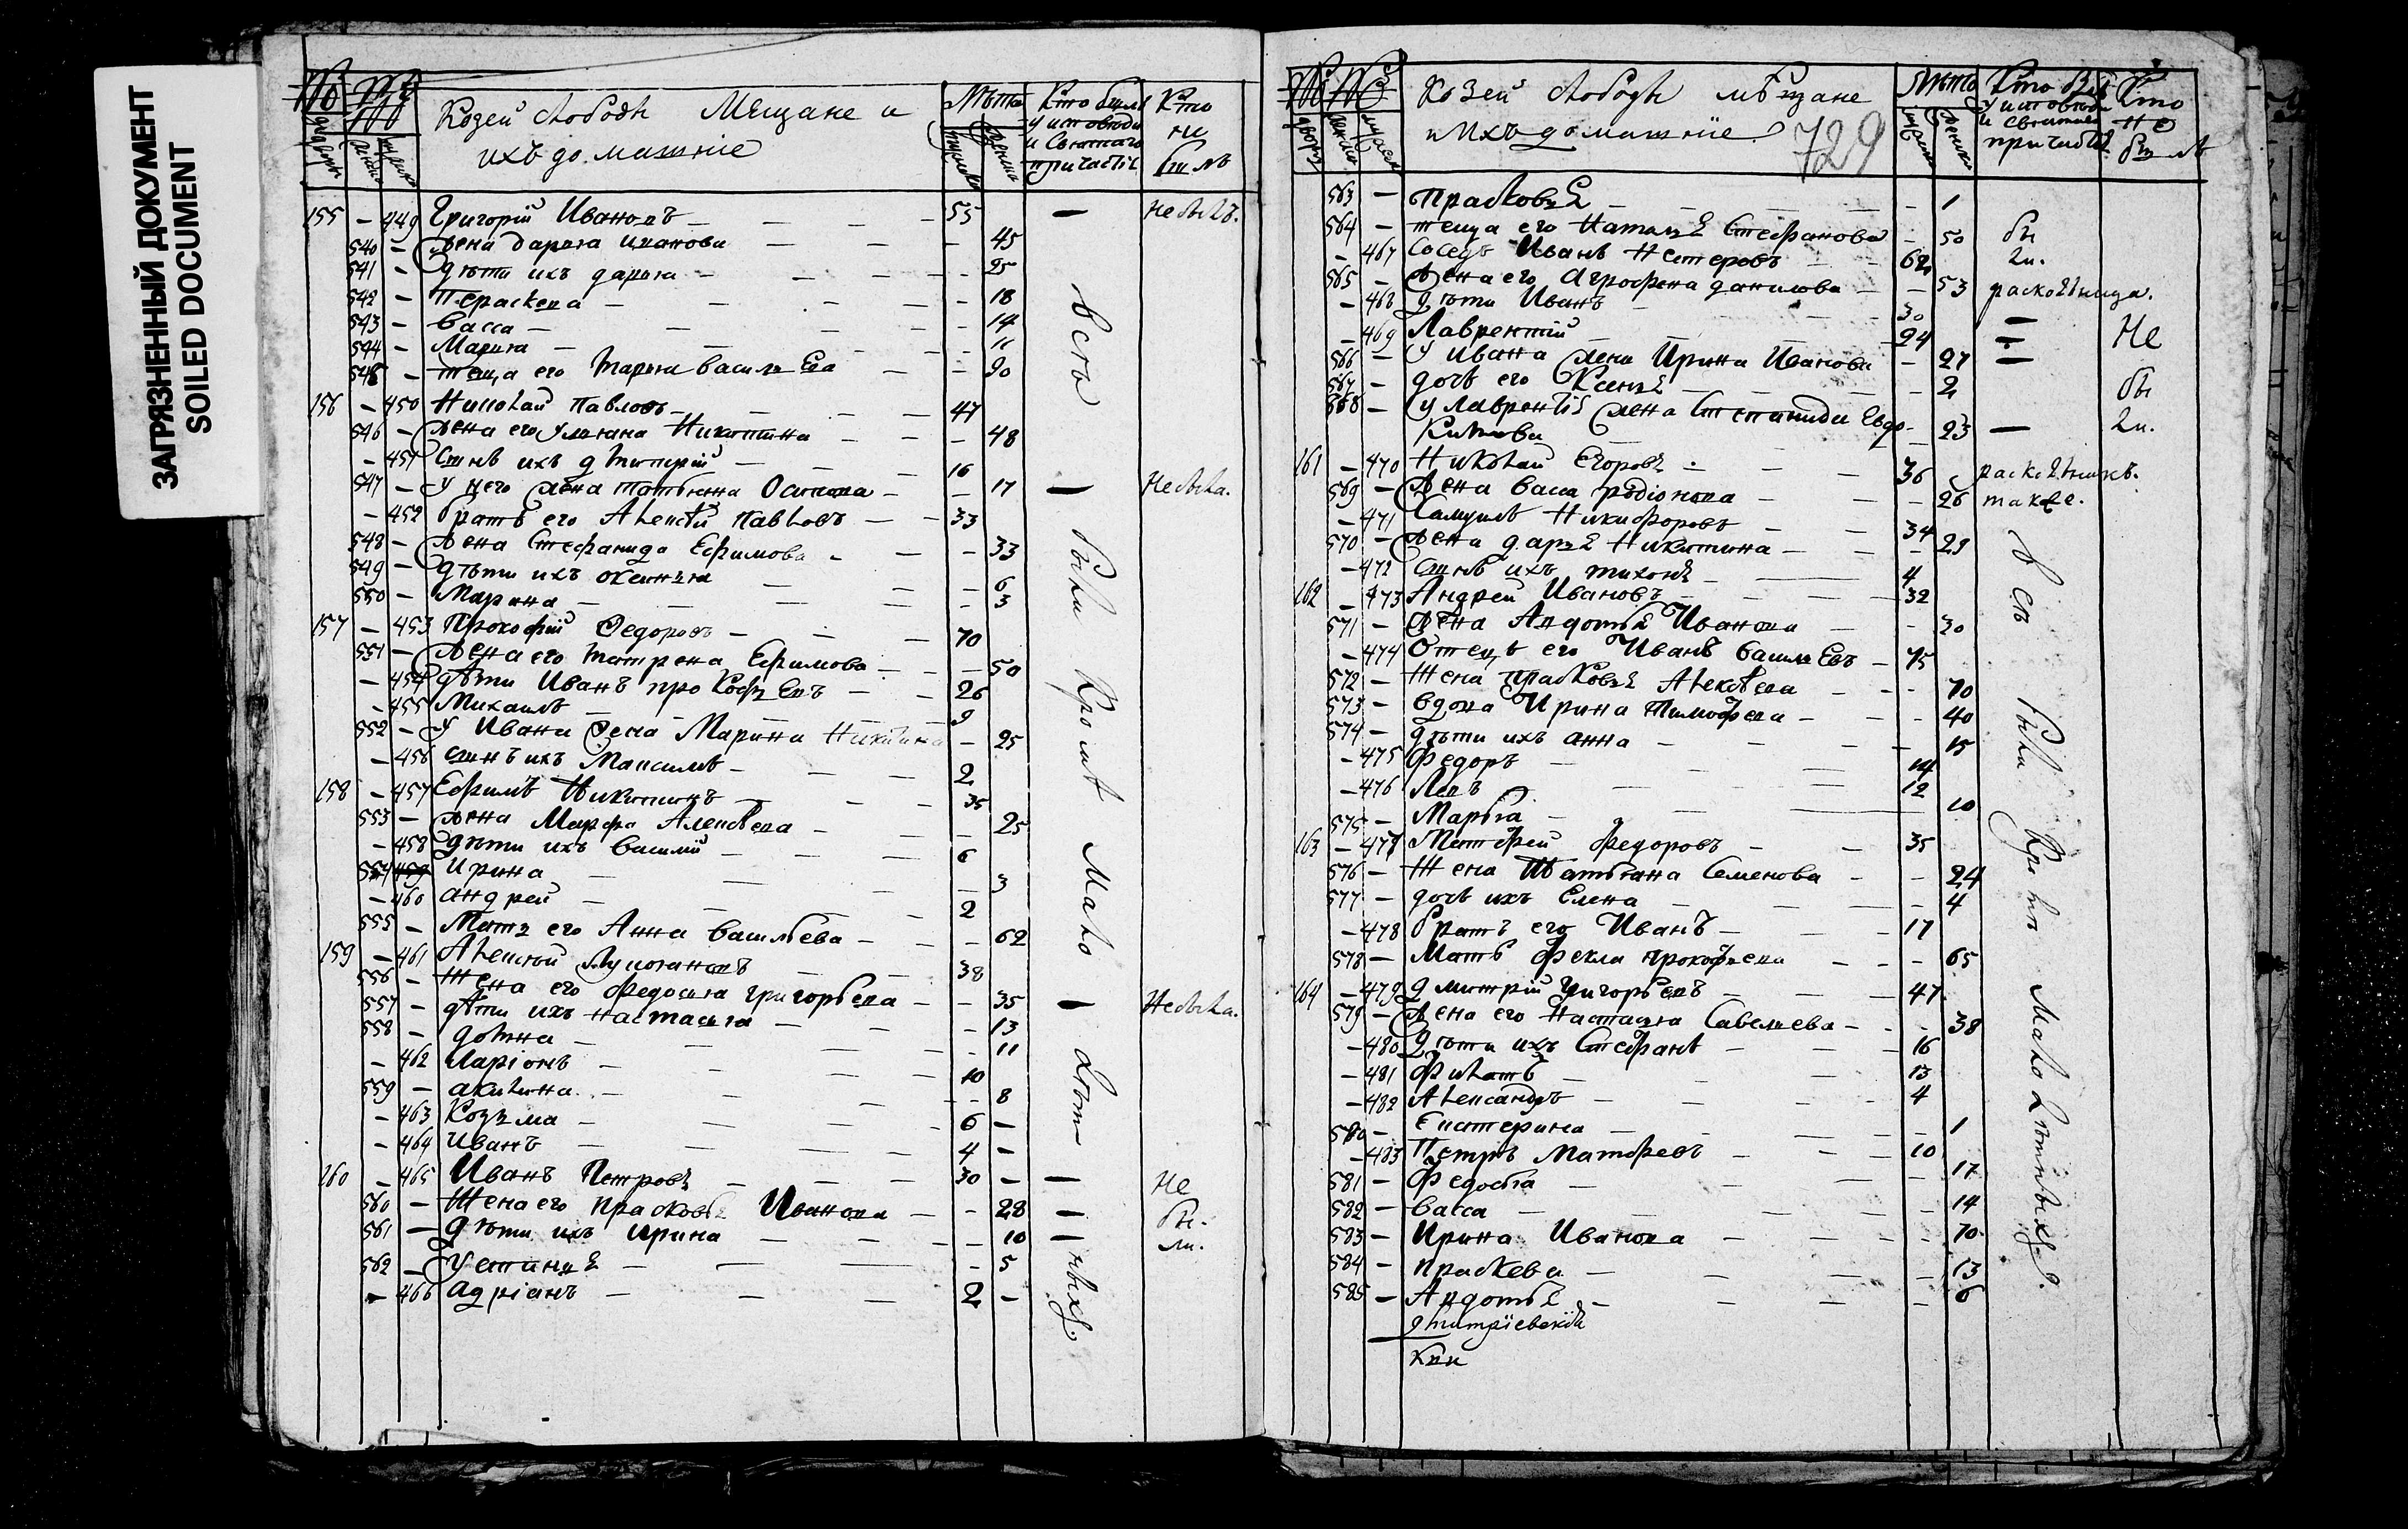 ЗАГРЯЗНЕННЫЙ ДОКУМЕНТ
SOILED DOCUMENT
Козей слободы Мещане и
ихъ домашние
Лѣта
Кто былъ
у исповѣди
и святаго
причастiя
Кто
не
былъ
155 — 449 Григорiй Ивановъ — 55 — не былъ.
540 — жена дарья иванова — 45
541 — дѣти ихъ дарья — 25
542 — Параскева — 18
543 — васса — 14
544 — Марья — 11
545 — теща его Марья васильева — 90
156 — 450 Николай Павловъ — 47
546 — жена его Ульяна Никитина — 48
— 451 Сынъ ихъ дмитерiй — 16
547 — у него жена татьяна Осипова — 17 — не была.
— 452 братъ его Алексѣй Павловъ — 33
548 — жена Стефанида Ефимова — 33
549 — дѣти ихъ оксинья — 6
550 — Марина — 3
157 — 453 Прокофiй Федоровъ — 70
551 — жена его матрена Ефимова — 50
— 454 дѣти Иванъ прокофьевъ — 26
— 455 Михаилъ — 9
552 — у Ивана жена Марина Никитина — 25
— 456 сынъ ихъ Максимъ — 2
158 — 457 Ефимъ Никитинъ — 35
553 — жена Марфа Алексѣева — 25
— 458 дѣти ихъ василiй — 6
554 459 Ирина — 3
— 460 андрей — 2
555 — Мать его Анна васильева — 62
159 — 461 Алексѣй — 38
556 — жена его федосья григорьева — 35 — не была.
557 — дѣти ихъ настасья — 13
558 — домна — 11
— 462 иларiонъ — 10
559 — акилина — 8
— 463 Козьма — 6 —
— 464 иванъ — 4 —
160 — 465 Иванъ Петровъ — 30 — — не
560 — Жена его прасковья Иванова — 28 — бы-
561 — дѣти ихъ ирина — 10 — ли.
562 — устинья — 5
— 466 адрiанъ — 2 —
всѣ были кромѣ малолѣтныхъ.
Козей слободы мѣщане
и ихъ домашнiе
729
Лѣта
Кто былъ
у исповѣди
и святаго
причастiя
Кто
не
былъ
563 — прасковья — 1
564 — теща его Наталья Стефанова — 50 бы
— 467 Соседъ Иванъ Нестеровъ — 62 ли.
565 — жена его Агрофена данилова — 53 раскольница.
— 468 дѣти Иванъ — 30 —
— 469 Лаврентiй — 24 — Не
566 — у ивана жена Ирина Иванова — 27 —
567 — дочь его Ксенья — 2 бы
568 — у лаврентiя жена Степанида Евдо-
кимова — 23 — ли.
161 — 470 Николай Егоровъ — 36 раскольникъ.
569 — жена васса родiонова — 26 также.
— 471 Самуилъ Никифоровъ — 34
570 — жена дарья Никитина — 29
— 472 сынъ ихъ тихонъ — 4
162 — 473 Андрей Ивановъ — 32
571 — жена Авдотья Иванова — 30
— 474 Отецъ его Иванъ васильевъ — 75
572 — Жена прасковья Алексѣева — 70
573 — вдова Ирина тимофеева — 40
574 — дѣти ихъ анна — 15
— 475 федоръ — 14
— 476 Левъ — 12
575 — Марья — 10
163 — 477 Матфей федоровъ — 35
576 — Жена Татьяна Семенова — 24
577 — дочь ихъ Елена — 4
— 478 братъ его Иванъ — 17
578 — Мать фекла прокофьева — 65
164 — 479 дмитрiй григорьевъ — 47
579 — жена его Настасья Савельева — 38
— 480 дѣти ихъ Стефанъ — 16
— 481 филатъ — 13
— 482 Александръ — 4
580 — Екатерина — 1
— 483 Петръ Матфеевъ — 10
581 — федосья — 17
582 — васса — 14
583 — Ирина Иванова — 70
584 — праскева — 13
585 — Авдотья — 6
дмитрiевскiй
всѣ были кромѣ малолѣтныхъ.